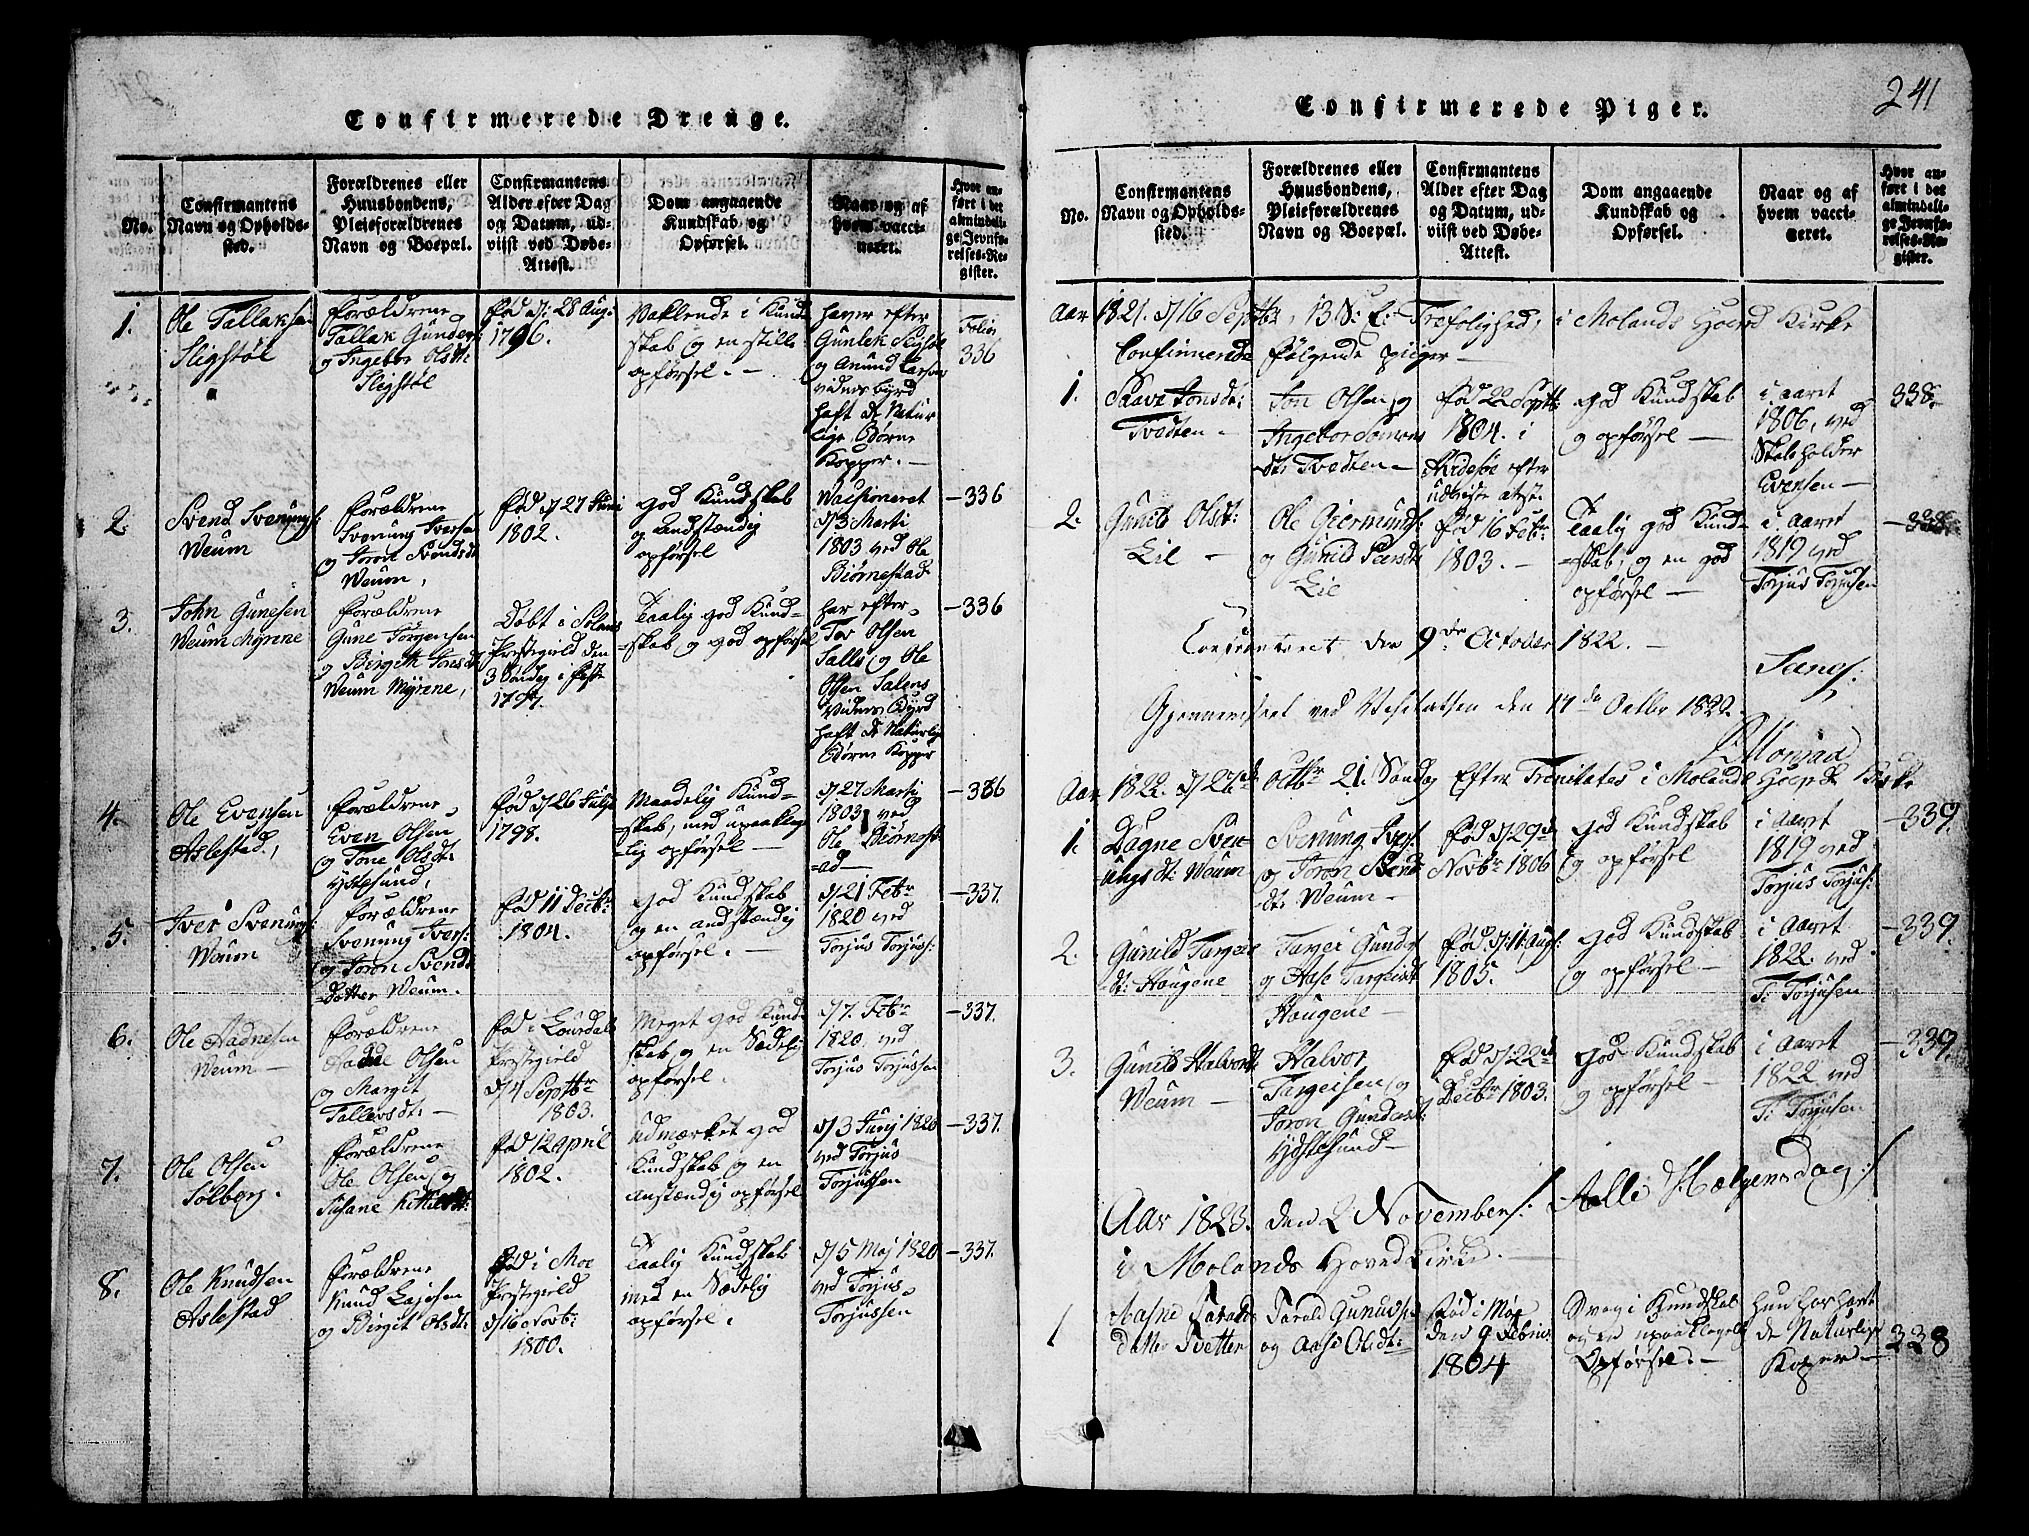 241
Confirmerede Drenge.
No.
Confirmantens
Navn og Opholds-
sted.
Forældrenes eller
Huusbondens,
Pleieforældrenes
Navn og Boepæl.
Confirmantens
Alder efter Dag
og Datum, ud-
viist ved Døbe-
Attest.
Dom angaaende
Kundskab og
Opførsel.
Naar og af
hvem vacci-
neret.
Hvor an-
ført i det
almindeli-
ge Jevnfø-
relses-Re-
gister.
1.
Ole Tallaksen
Sligstøl
Forældrene
Tallak Gunders:
og Ingebor Olsdt:
Sligstøl
fød d/: 28 Aug:
1796.
Vaklende i Kund
skab og en stille
opførsel. -
haver efter
Gunlek
og Anund Larsen
vidnesbyrd
haft de Natur
lige Børne
Kopper. -
Folio
336
2.
Svend Svenungs:
Weum
Forældrene
Svenung Iversen
og Joron Svendsdt
Weum,
fød d/27 Juni
1802.
god Kundskab
og andstændig
opførsel
Waksioneret
d/3 Marti
1803 ved Ole
Biørnestad
-336
3.
John Gunesen
Weum Myrene
Forældrene
Gune Jørgensen
og Birgeth Jonsdt
Weum Myrene,
Døbt i
Prestegield den
3 Søndag i faste
1797.
Taalig god Kund-
=skab og god opførsel
har efter
Tov Olsen
og Ole
Olsen Salens
Vidnes Byrd
haft de Naturlig
Børne Kopper
-336
4.
Ole Evensen
Aslestad,
Forældrene
Even Olsen
og Tone Olsdt:
Hystesund,
fød d/26
1798.
Maadelig Kund-
=skab, med upaaklag
=lig opførsel -
d/27 Marti
1803 ved
Ole Biørnest
=ad-
-336
5.
Iver Svenungs:
Weum
Forældrene
Svenung Ivers:
og Joron Svends
=Dotter Weum.
fød 11 Decbr:
1804.
god Kundskab
og en andstændig
opførsel. -
d/21 Febr
1820 ved
Torjus Torjuss:
-337.
6.
Ole Aadnesen
Weum -
Forældrene
Aadne Olsen
og Margit
Tallevsdt: -
fød i Lourdals
Prestegield
d/4 Septbr
1803.
Meget god Kund
skab og en Sædelig
opførsel.
d/7. Febr
1820. ved
Torjus Torjussen
-337.
7.
Ole Olsen
Solberg.
Forældrene
Ole Olsen og
Susane Kittilsdt:
fød 12 april
1802.
Udmærket god
Kundskab og en
anstændig opførsel
d/3 Junj 1820
ved Torjus
Torjussen
-337.
8.
Ole Knudsen
Aslestad
Forældrene
Knud
og Birgit Olsdt:
fød i Moe
Prestegield
d/16 Novb:
1800.
Taalig Kundskab
med en Sædelig
opførsel.
d/5 Maj 1820
ved Torjus
Torjussen
-337.
Confirmerede Piger.
No.
Confirmantens
Navn og Opholds-
sted.
Forældrenes eller
Huusbondens,
Pleieforældrenes
Navn og Boepæl.
Confirmantens
Alder efter Dag
og Datum, ud-
viist ved Døbe-
Attest.
Dom angaaende
Kundskab og
Opførsel.
Naar og af
hvem vacci-
neret.
Hvor an-
ført i det
almindeli-
ge Jevnfø-
relses-Re-
gister.
Aar 1821. d/16 Septbr, 13 S: E: Trefolighed, i Molands Hoved Kirke
Confirmerede følgende piiger -
1.
Saave Jonsdt:
Tvedten -
Jon Olsen, og
Ingebor
dtr Tvedten -
fød 22 Septb:
1804. i
efter
udviste atest.
god Kundskab
og opførsel -
i aaret
1806, ved
Skoleholder
Evensen -
338.
2.
Gunild Olsdt:
Lil -
Ole Giermunds:
og Gunild Pærsdt
Lil
fød 16 Febr:
1803. -
Taalig god Kund-
=skab, og en god
opførsel -
i Aaret
1819 ved
Torjus Torjusen
-338.
den 9de October 1822. -
Gjennemseet ved Visitatsen den 17de Octbr 1822.
Aar 1822. d/27de Octbr 21. Søndag Efter Trenitates i Molands Hoved Kirke
1.
Dagne Sven-
ungsdt: Weum
Svenung Ivers:
og Joron Svend
dtr Weum -
fød d/29de
Novbr 1806
god Kundskab
og opførsel
i Aaret
1819 ved
Torjus Torjus:
-339.
2.
Gunild Targeie
dt: Haugene
Targei Gunders
og Aase Targeisdt
Haugene -
fød. d/11 Augs:
1805.
god Kundskab
og opførsel -
i Aaret
1822. ved
T: Torjusen
-339.
3.
Gunild Halvordt
Weum -
Halvor
Targeisen, og
Joron Gundersdt:
Hystesund -
fød d/22de
Decbr 1803.
god Kundskab
og opførsel -
i Aaret
1822 ved
T: Torjusen
-339.
Aar 1823. den 2 November /: Alle Hælgensdag :/
i Molands Hovedkirke. -
1
Tarals
datter Tvetten
Tarald Gunus:
og Aase Olsdt:
fød i Moe
den 9 Febru
1804
Svag i Kundskab
og en upaaklagelig
Opførsel. -
hun har havt
de Naturlige
Koper -
338